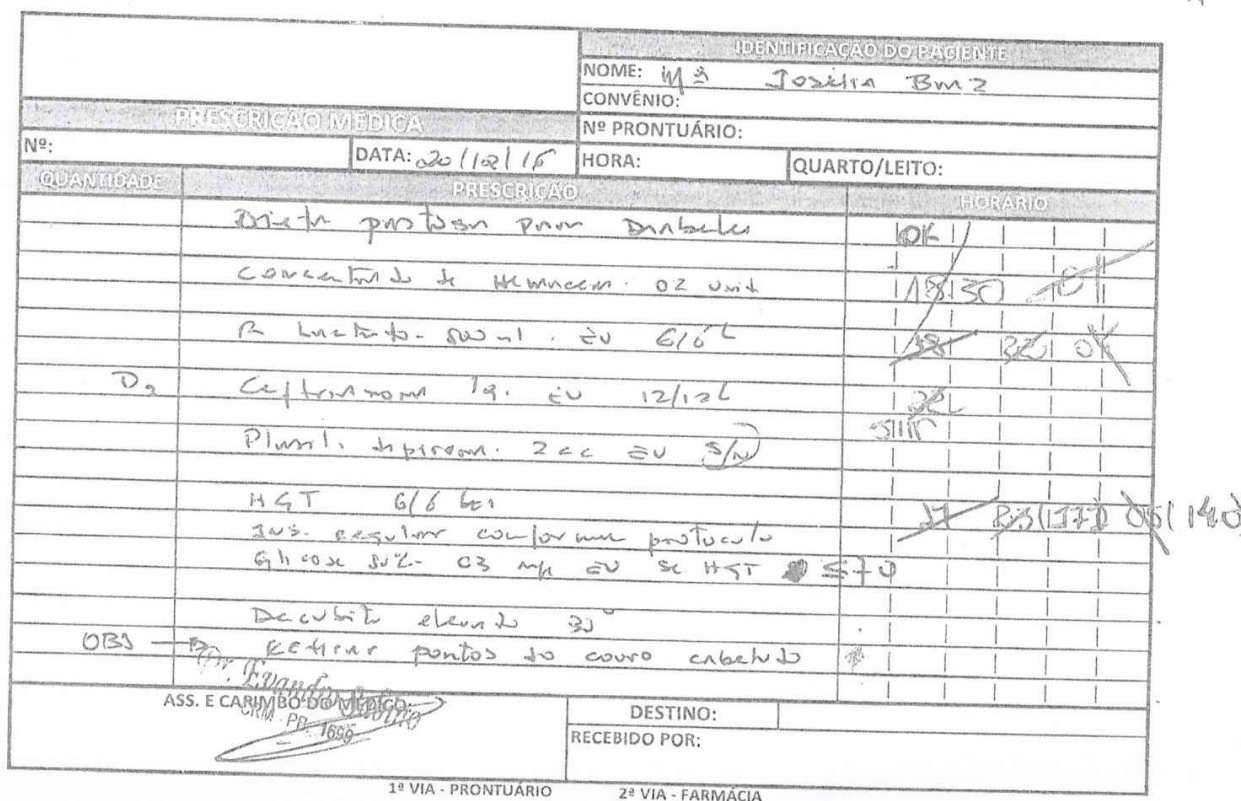 IDENTIFICAÇÃO DO PACIENTE
NOME: Mª Josélia
CONVÊNIO:
PRESCRIÇÃO MÉDICA
Nº PRONTUÁRIO:
Nº: DATA: HORA: QUARTO/LEITO:
QUANTIDADE PRESCRIÇÃO HORÁRIO
Dieta para Diabetes OK
Concentrado de Hemácea. 02 unid 18:30
R Lactato - 500 ml. EV 6/6
D2 Ceftriaxona 1g. EV 12/12
dipirona. 2cc EV S/N
HGT 6/6
Ins. regular conforme protocolo
Glicose 50% - 03 EV se HGT ≤70
Decubito elevado 30°
OBS Retirar pontos do couro cabeludo
Dr. Evandro
ASS. E CARIMBO DO MÉDICO:
CRM - 1699
DESTINO:
RECEBIDO POR:
1ª VIA - PRONTUÁRIO 2ª VIA - FARMÁCIA